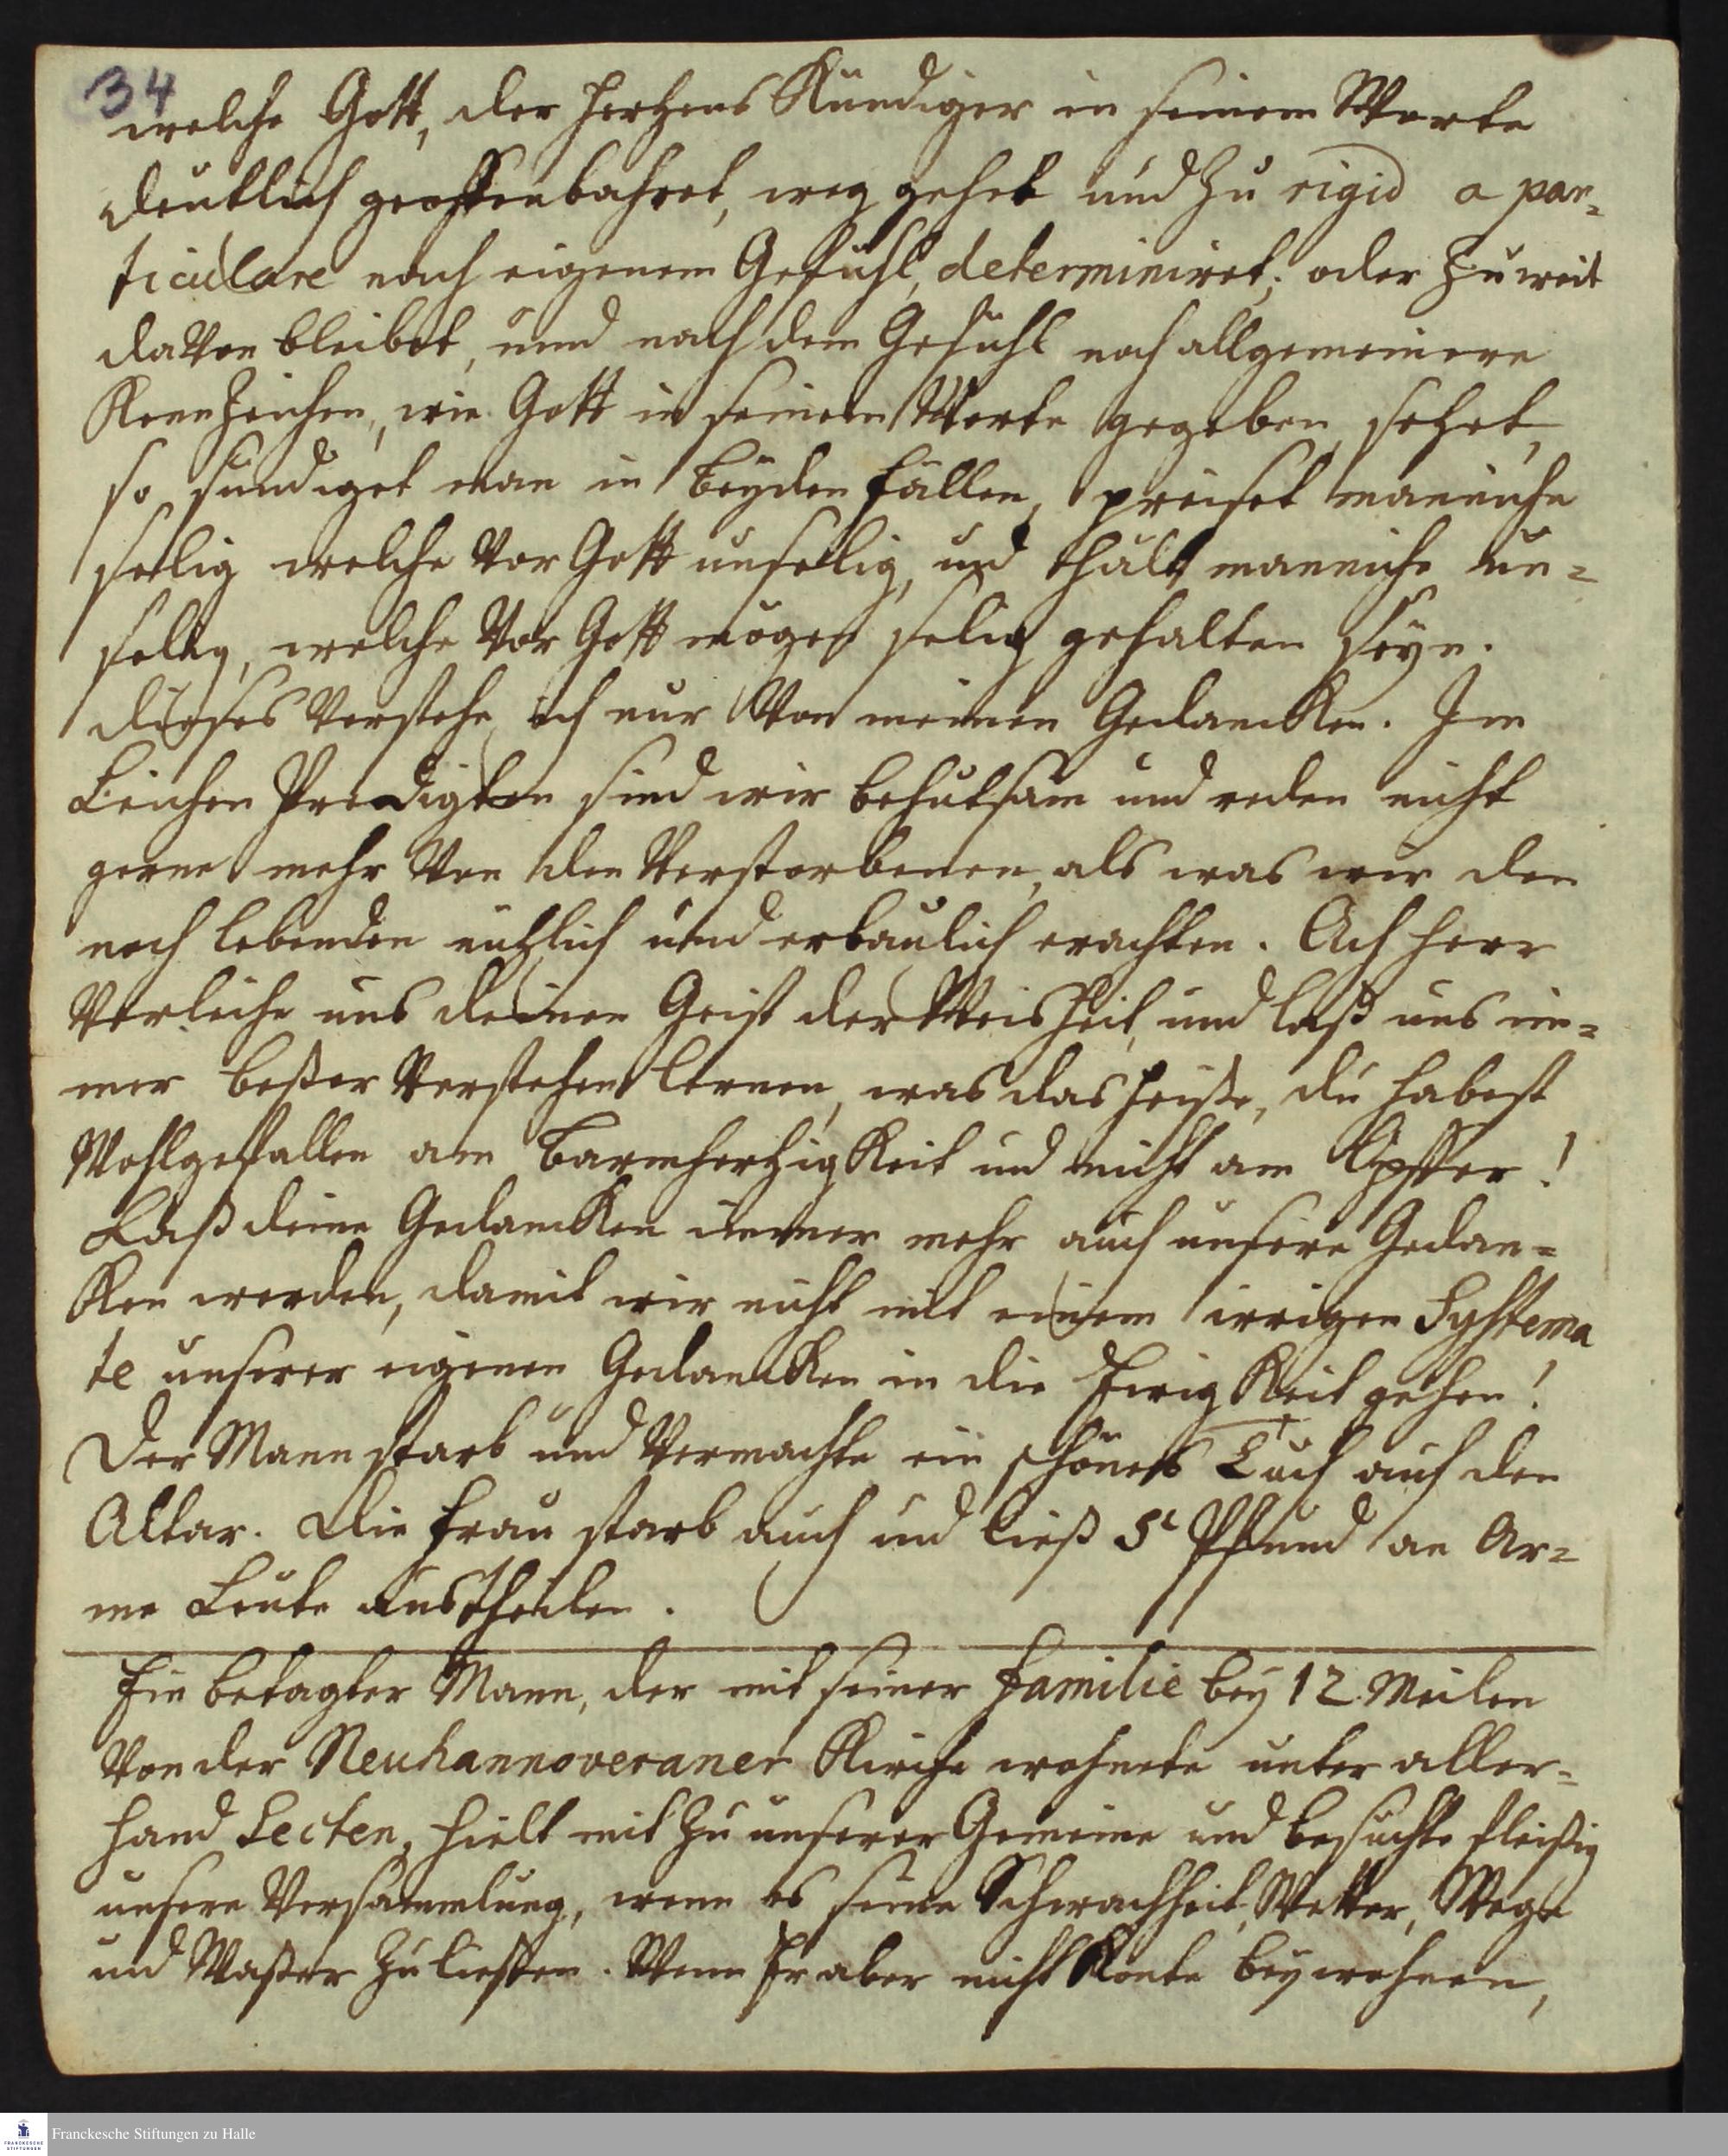 34
welche Gott, der Hertzens Kündiger in seinem Worte
deutlich geoffenbahret, weg gehet und zu rigid a par-
ticulare nach eigenem Gefühl, determiniret; oder zu weit
davon bleibet, und nach dem Gefühl noch allgemeinere
Kennzeichen, wie Gott in seinem Worte gegeben, setzet,
so sündiget man in beyden Fällen, preiset manniche
seelig welche vor Gott unselig, und hält manniche un-
selig, welche vor Gott mögen selig gehalten seyn.
dieses verstehe ich nur von meinen Gedancken. In
Leichen Predigten sind wir behutsam und reden nicht
gerne mehr von den Verstorbenen, als was wir den
noch lebenden nützlich und erbaulich erachten. Ach Herr
Verleihe uns deinen Geist der Weisheit, und laß uns im-
mer beßer verstehen lernen, was das heiße, du habest
Wohlgefallen am Barmhertzigkeit und nicht am Opffer!
Laß deine Gedancken immer mehr auch unsere Gedan-
cken werden, damit wir nicht mit einem irrigen Systema
te unserer eigenen Gedancken in die Ewigkeit gehen!
Der Mann starb und vermachte ein schönes Tuch auf den
Altar. Die Frau starb auch und ließ 5 Pfund an Ar-
me Leute austheilen.
Ein betagter Mann, der mit seiner Familie bey 12 Meilen
von der Neuhannoveraner Kirche wohnete unter aller-
hand Secten, hielt mit zu unserer Gemeine und besuchte fleißig
unsere Versammlung, wenn es seine Schwachheit, Wetter, Wege
und Waßer zuließen. Wenn Er aber nicht konte beywohnen,
FRANCKESCHE STIFTUNGEN
Franckesche Stiftungen zu Halle